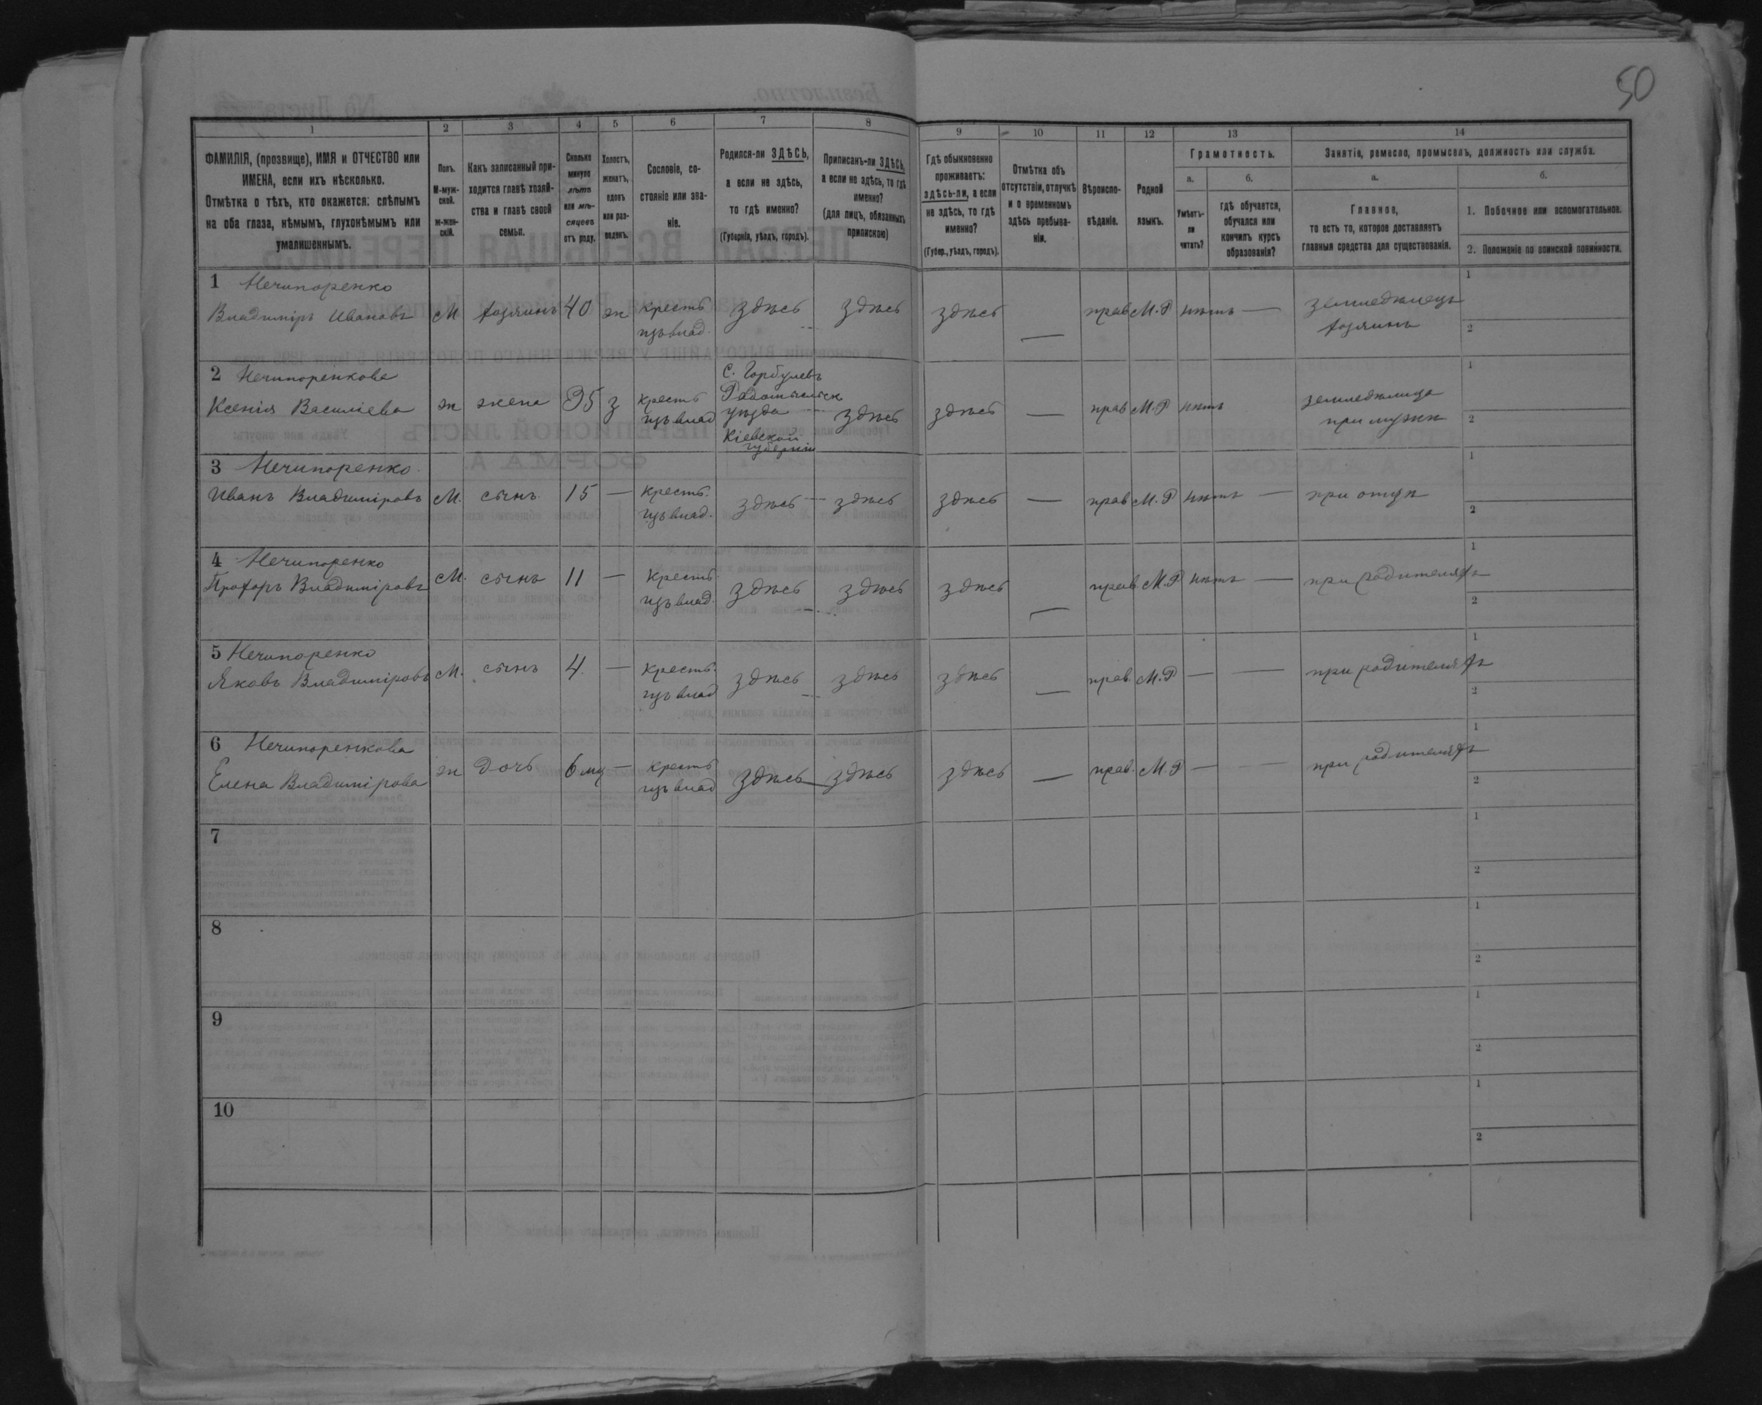 50
1 2 3 4 5 6 7 8 9 10 11 12 13 14
ФАМИЛІЯ, (прозвище), ИМЯ и ОТЧЕСТВО или
ИМЕНА, если ихъ нѣсколько.
Отмѣтка о тѣхъ, кто окажется: слѣпымъ
на оба глаза, нѣмымъ, глухонѣмымъ или
умалишеннымъ.
Полъ.
М-муж-
ской.
Ж-жен-
скій.
Какъ записанный при-
ходится главѣ хозяй-
ства и главѣ своей
семьи.
Сколько
минуло
лѣтъ
или мѣ-
сяцевъ
отъ роду.
Холостъ,
женатъ,
вдовъ
или раз-
веденъ.
Сословіе, со-
стояніе или зва-
ніе.
Родился-ли ЗДѢСЬ,
а если не здѣсь,
то гдѣ именно?
(Губернія, уѣздъ, городъ).
Приписанъ-ли ЗДѢСЬ,
а если не здѣсь, то гдѣ
именно?
(для лицъ, обязанныхъ
припискою)
Гдѣ обыкновенно
проживаетъ:
здѣсь-ли, а если
не здѣсь, то гдѣ
именно?
(Губер., уѣздъ, городъ).
Отмѣтка объ
отсутствіи, отлучкѣ
и о временномъ
здѣсь пребыва-
ніи.
Вѣроиспо-
вѣданіе.
Родной
языкъ.
Грамотность.
а.
Умѣетъ-
ли
читать?
б.
гдѣ обучается,
обучался или
кончилъ курсъ
образованія?
Занятіе, ремесло, промыселъ, должность или служба.
а.
Главное,
то есть то, которое доставляетъ
главныя средства для существованія.
б.
1. Побочное или вспомогательное.
2. Положеніе по воинской повинности.
1 Нечипоренко
Владиміръ Ивановъ М хозяинъ 40 ж крестъ. здѣсь здѣсь здѣсь — прав М.Р нѣтъ — земледѣлецъ
изъ влад. хозяинъ
1
2
2 Нечипоренкова
Ксенія Василіева ж жена 35 з крестъ изъ влад
С. Горбулевъ
Радомысльск
уѣзда
Кіевской
губерніи
здѣсь здѣсь — прав М.Р нѣтъ земледѣлица
при мужѣ
1
2
3 Нечипоренко
Иванъ Владиміровъ М. сынъ 15 — крестъ. здѣсь — здѣсь здѣсь — прав М.Р нѣтъ — при отцѣ
изъ влад.
1
2
4 Нечипоренко
Прохоръ Владиміровъ М. сынъ 11 — крестъ. здѣсь здѣсь здѣсь — прав М.Р нѣтъ — при родителяхъ
изъ влад.
1
2
5 Нечипоренко
Яковъ Владиміровъ М. сынъ 4 — крестъ. здѣсь здѣсь здѣсь — прав. М.Р — — при родителяхъ
изъ влад
1
2
6 Нечипоренкова
Елена Владимірова ж дочь 6 мц — крестъ здѣсь — здѣсь здѣсь — прав. М.Р — — при родителяхъ
изъ влад
1
2
7
1
2
8
1
2
9
1
2
10
1
2